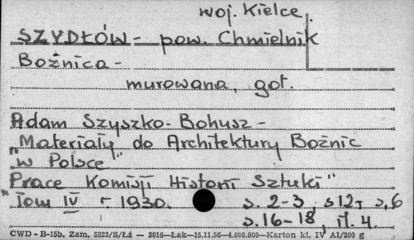 woj. Kielce
SZYDŁÓW - pow. Chmielnik
Bożnica -
murowana, got.
Adam Szyszko-Bohusz -
"Materiały do Architektury Bożnic
w Polsce"
Prace Komisji Historii Sztuki"
"Tom IV r 1930. s. 2-3, s 12, s, 6
s. 16-18, il. 4.
CWD - B-15b. Zam. 5523/S/Łż — 2010—Łak—15.11.56—4.000.000—Karton kl. IV A1/200 g